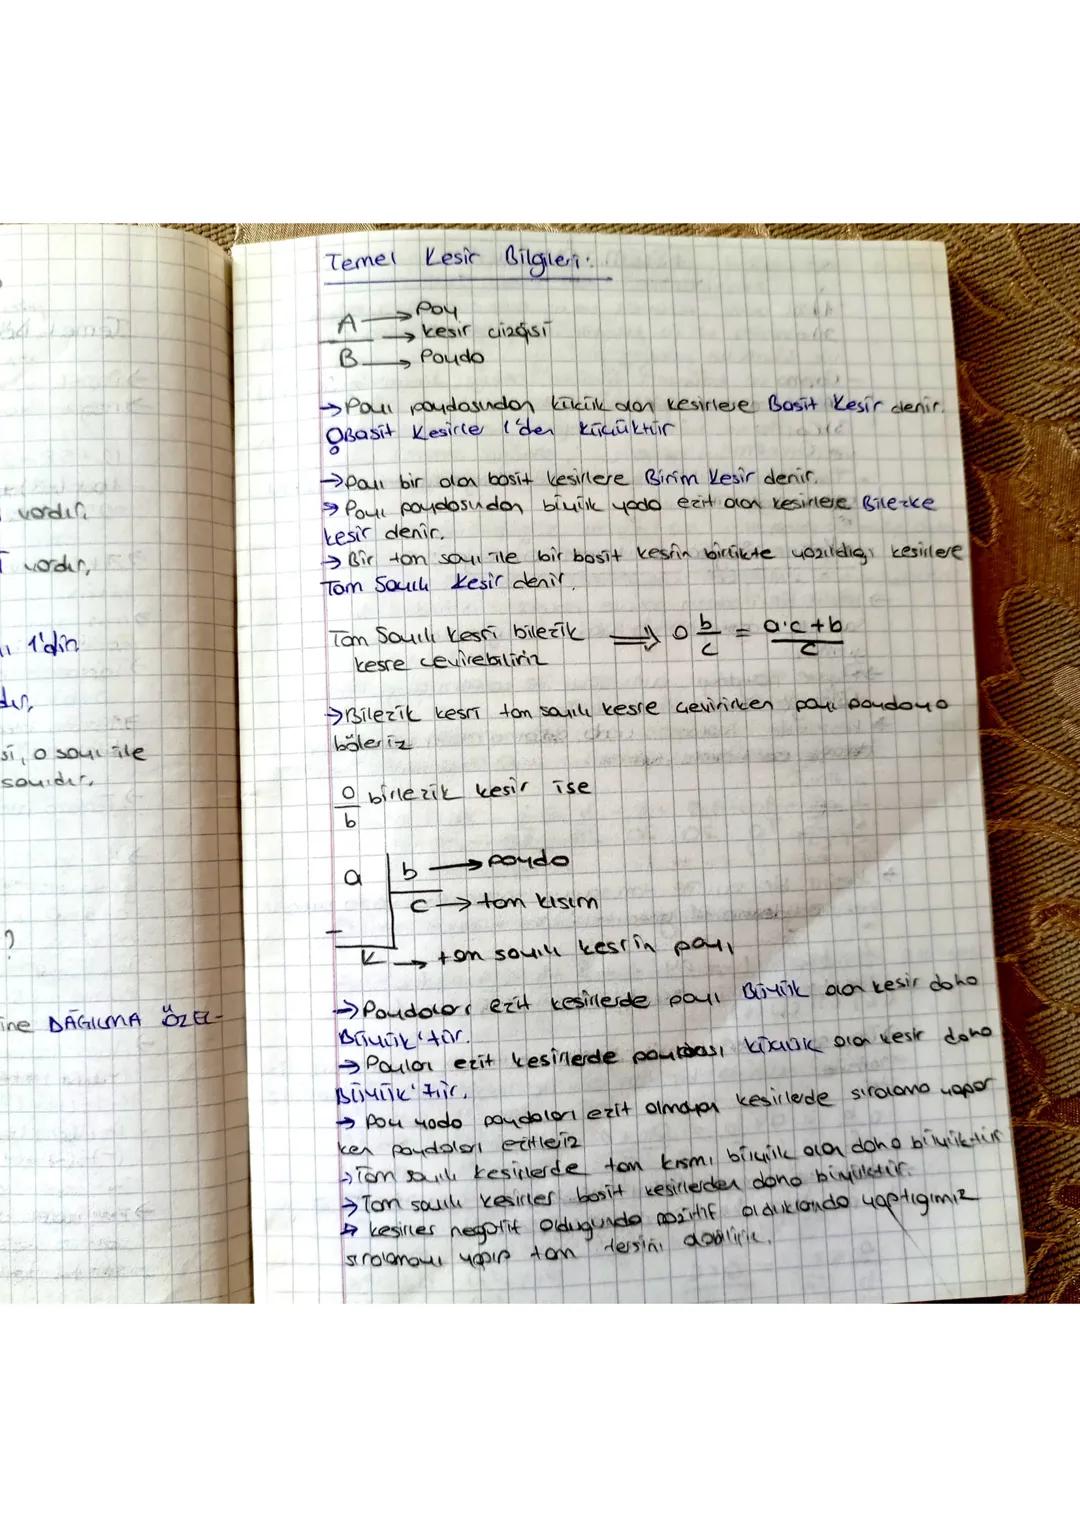 Temel Kesir Bilgileri:
A → Pay
→ kesir çizgisi
B → Payda
→ Payı paydasından küçük olan kesirlere Basit Kesir denir.
Basit Kesirler 1'den küçüktür
→ Payı bir olan basit kesirlere Birim Kesir denir.
→ Payı paydasından büyük yada eşit olan kesirlere Bileşke
kesir denir.
→ Bir tam sayı ile bir basit kesrin birlikte yazıldığı kesirlere
Tam Sayılı Kesir denir.
Tam Sayılı kesri bileşik ⟹ a b/c = a·c+b/c
kesre çevirebiliriz
→ Bileşik kesri tam sayılı kesre çevirirken payı paydaya
böleriz
a/b birleşik kesir ise
a | b → payda
c → tam kısım
-
K → tam sayılı kesrin payı
→ Paydaları eşit kesirlerde payı Büyük olan kesir daha
Büyük'tür.
→ Payları eşit kesirlerde paydası küçük olan kesir daha
Büyük'tür.
→ Pay yada paydaları eşit olmayan kesirlerde sıralama yapar
ken paydaları eşitleriz
→ Tam sayılı kesirlerde tam kısmı büyük olan daha büyüktür
→ Tam sayılı kesirler basit kesirlerden daha büyüktür.
→ kesirler negatif olduğunda pozitif olduklarında yaptığımız
sıralamayı yapıp tam tersini alırız.
vardır.
vardır.
1'din
dır.
si, a sayı ile
sayıdır.
?
ine DAĞILMA ÖZEL-